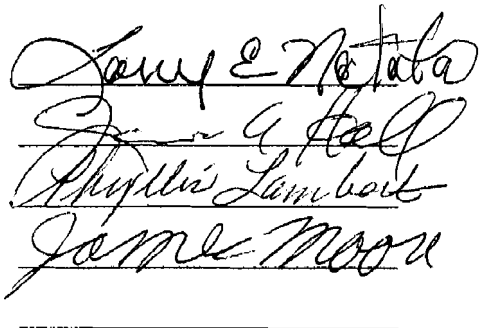 Larry E Natale
A Hall
Phyllis Lambert
James Moore